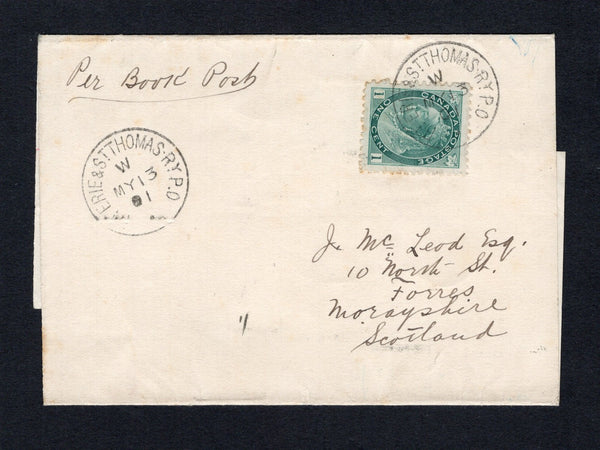 Per Book Post
ERIE & ST THOMAS·RY.P.O
W 3
MY 13
01
& ST THOMAS·RY.P.O
W
CANADA POSTAGE
ONE CENT
1 1
J. McLeod Esq.
10 North St.
Forres
Morayshire
Scotland